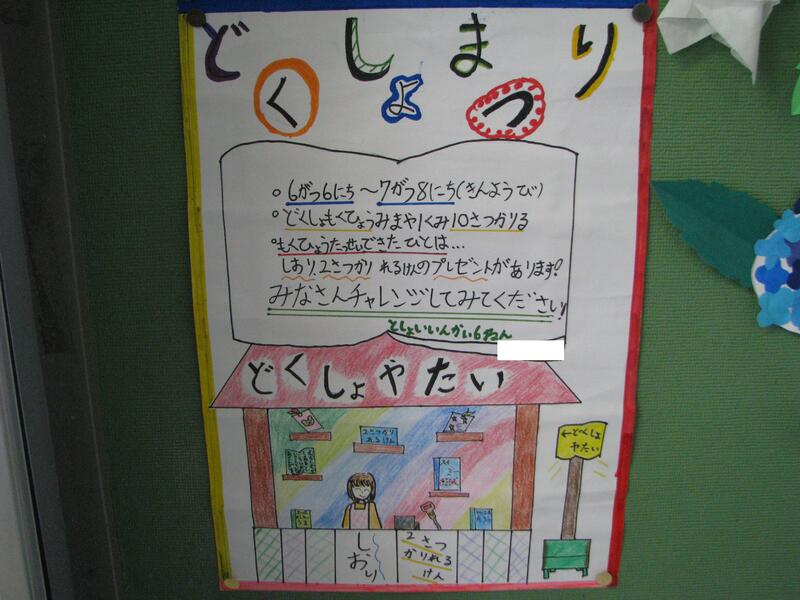 どくしょまつり
○6がつ6にち〜7がつ8にち(きんようび)
○どくしょもくひょう みまや1くみ10さつかりる
○もくひょうたっせいできたひとは…
しおり、2さつかりれるけんのプレゼントがあります!
みなさんチャレンジしてみてください!
としょいいんかい6ねん
どくしょやたい
2さつかり
れるけん
←どくしょ
やたい
しおり
2さつ
かりれる
けん